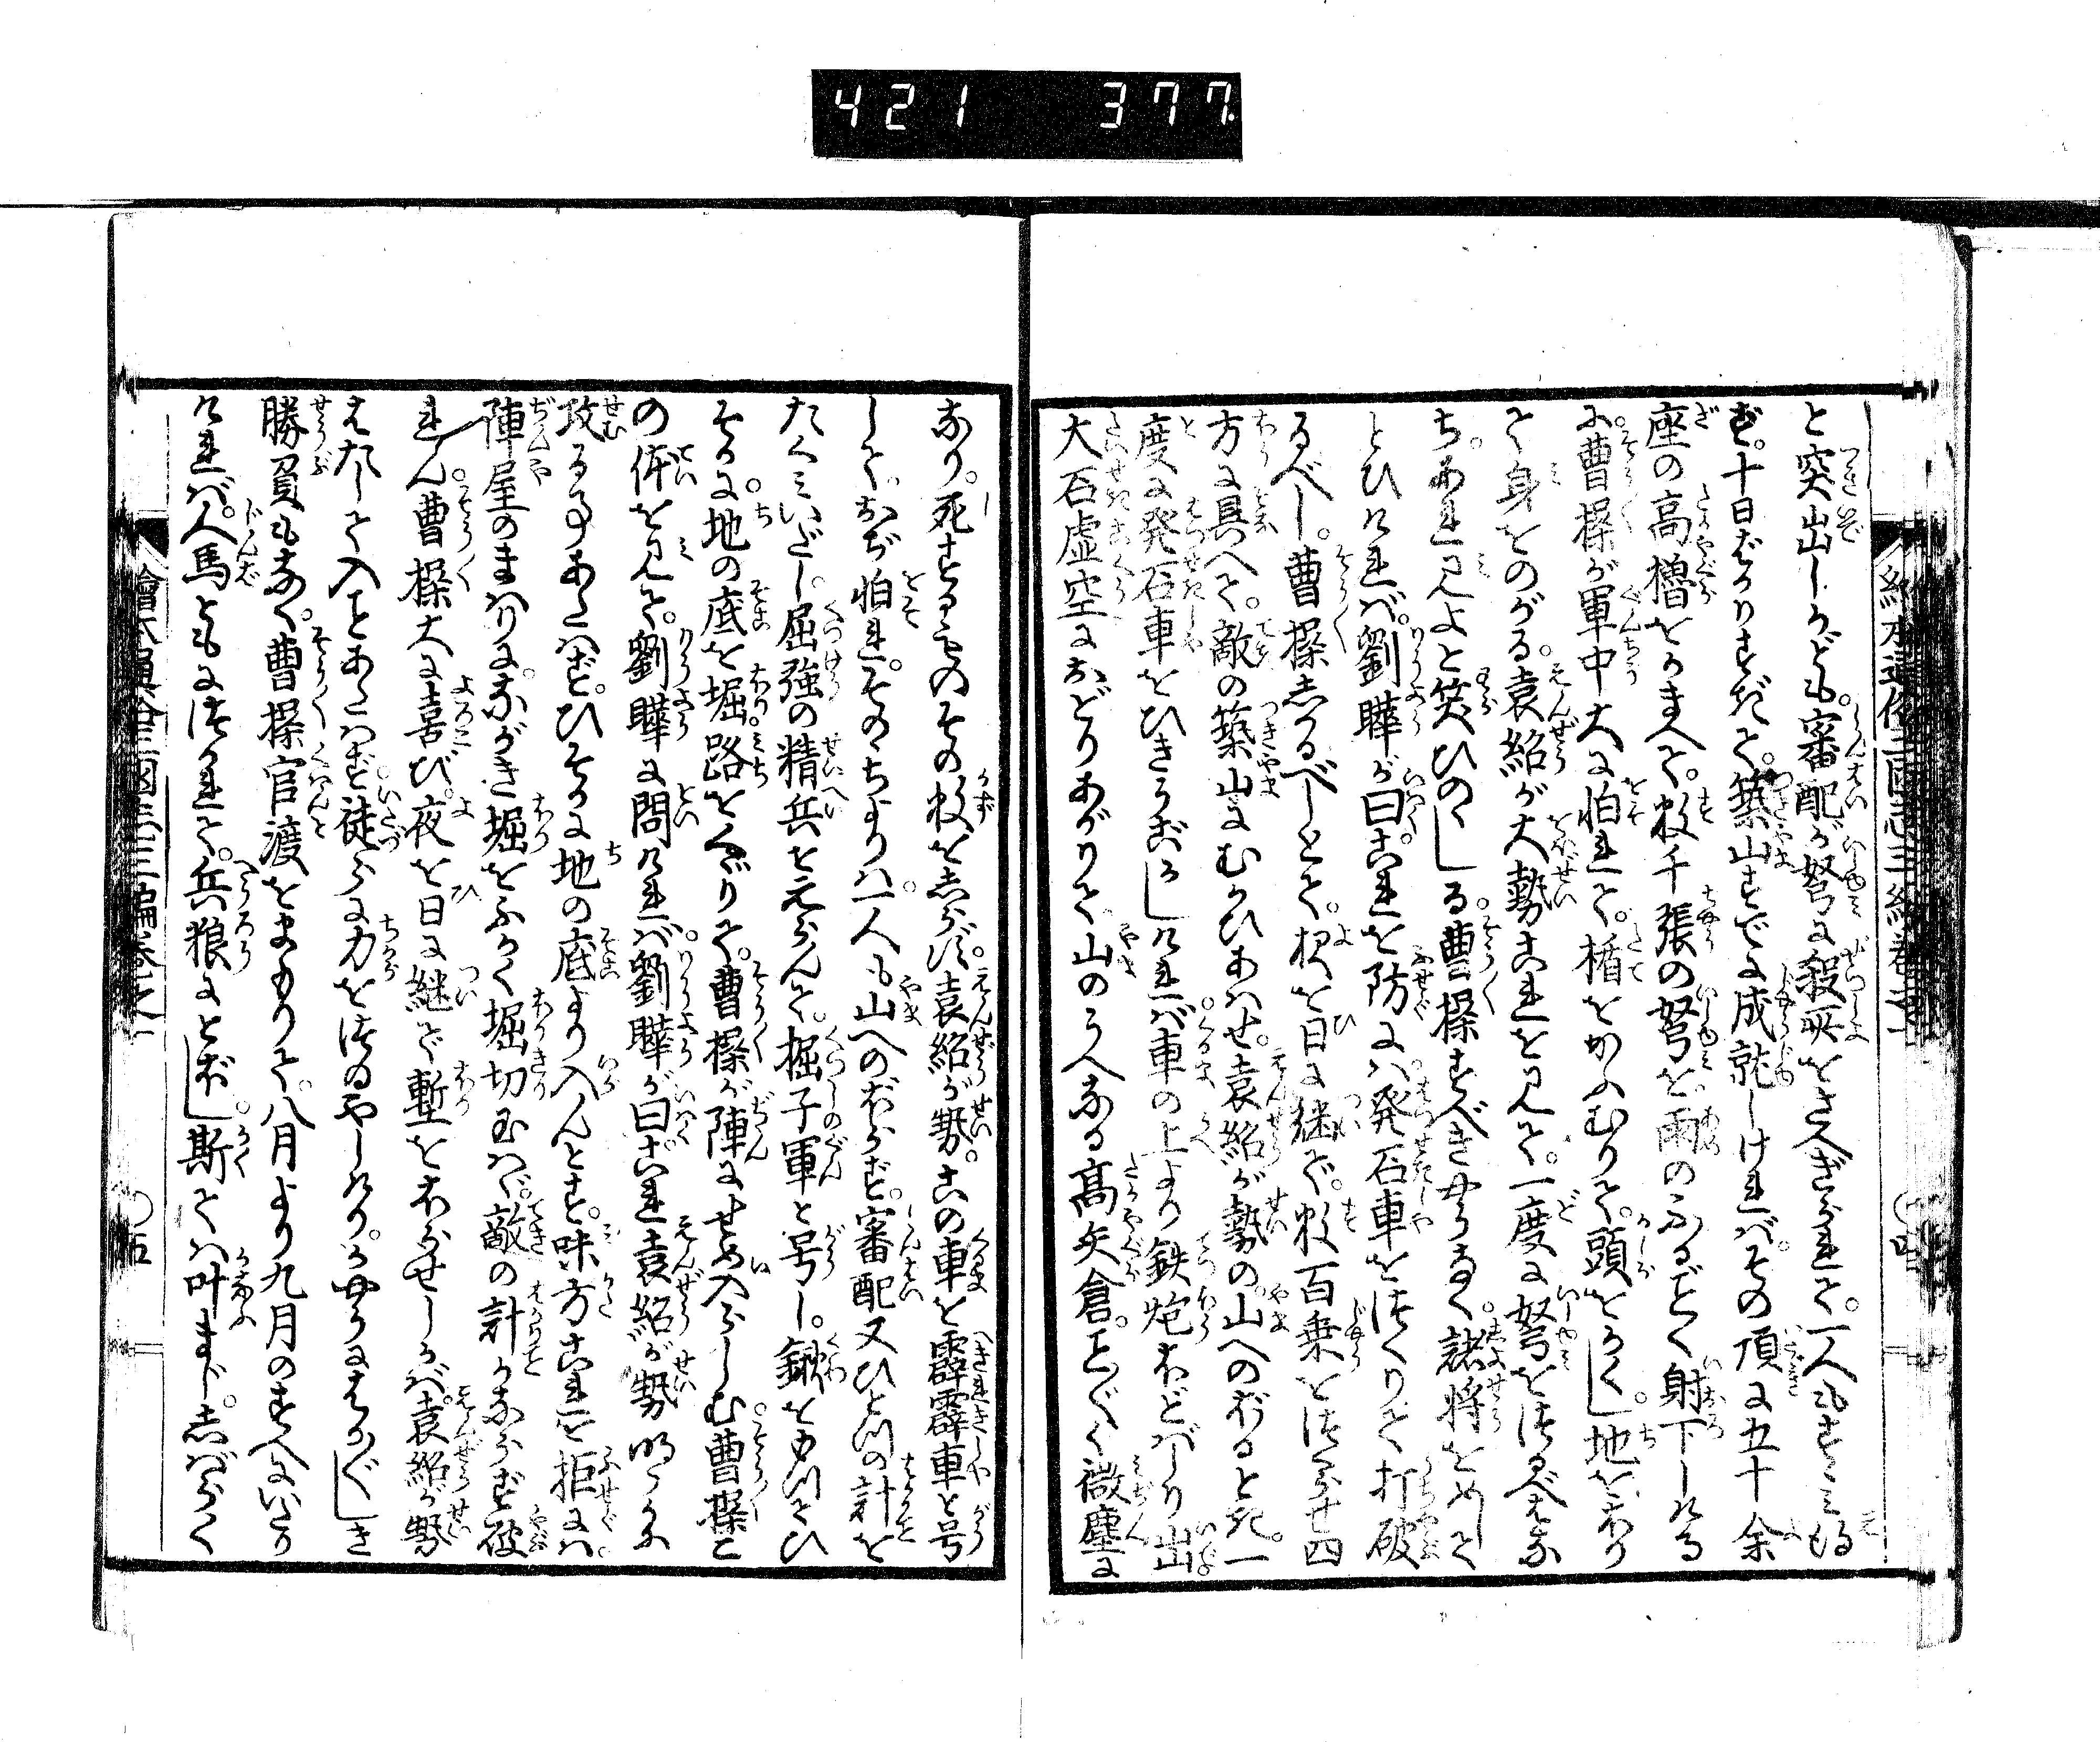 421 377
繪本通俗三國志三編巻之一
〇四
と突出しかども。審配が弩に殺所をさへぎられて。一人もすゝみ得
ず。十日ばかりすぎて。築山すでに成就しければ。その頂に五十余
座の高櫓をかまへて。数千張の弩を。雨のふるごとく射下しける
に。曹操が軍中大に怕れて。楯をかふむりて。頭をかくし。地をわり
て身をのがる。袁紹が大勢これを見て。一度に弩をつるべはな
ち。あれ見よと笑ひのゝしる。曹操すべきやうなく。諸将をめして
とひければ。劉曄が曰。これを防には。発石車をつくりて打破
るべし。曹操しかるべしとて。夜を日に継で。数百乗をつくらせ四
方に具へて。敵の築山にむかひあはせ。袁紹が勢の。山へのぼるとき。一
度に発石車をひきうごかしければ。車の上より鉄炮ほどばしり出
大石虚空におどりあがりて。山のうへなる高矢倉。ことごとく微塵に
なり。死するものその数をしらず。袁紹が勢。この車を霹靂車と号
して。おぢ怕れ。そのちよりは一人も山へのぼらず。審配又ひとつの計を
たくみいだし。屈強の精兵をえらんで。掘子軍と号し。鍬をもつてひ
そかに。地の底を堀。路をくゞりて。曹操が陣にせめ入らしむ。曹操こ
の体を見て。劉曄に問ければ。劉曄が曰。これ袁紹が勢明らかに
攻る事あたはず。ひそかに地の底より入んとす。味方これを拒には。
陣屋のまはりに。ながき堀をふかく堀切玉はゞ。敵の計かならず破
れん。曹操大に喜び。夜を日に継で塹をほらせしかば。袁紹が勢
はたして入ことあたはず。徒らに力をつゐやしけり。かやうにはかばかしき
勝負もなく。曹操官渡をまもりて。八月より九月のすへにいたり
ければ。人馬ともにつかれて。兵粮にとぼし。斯ては叶まじ。しばらく
繪本通俗三國志三編巻之一
〇五